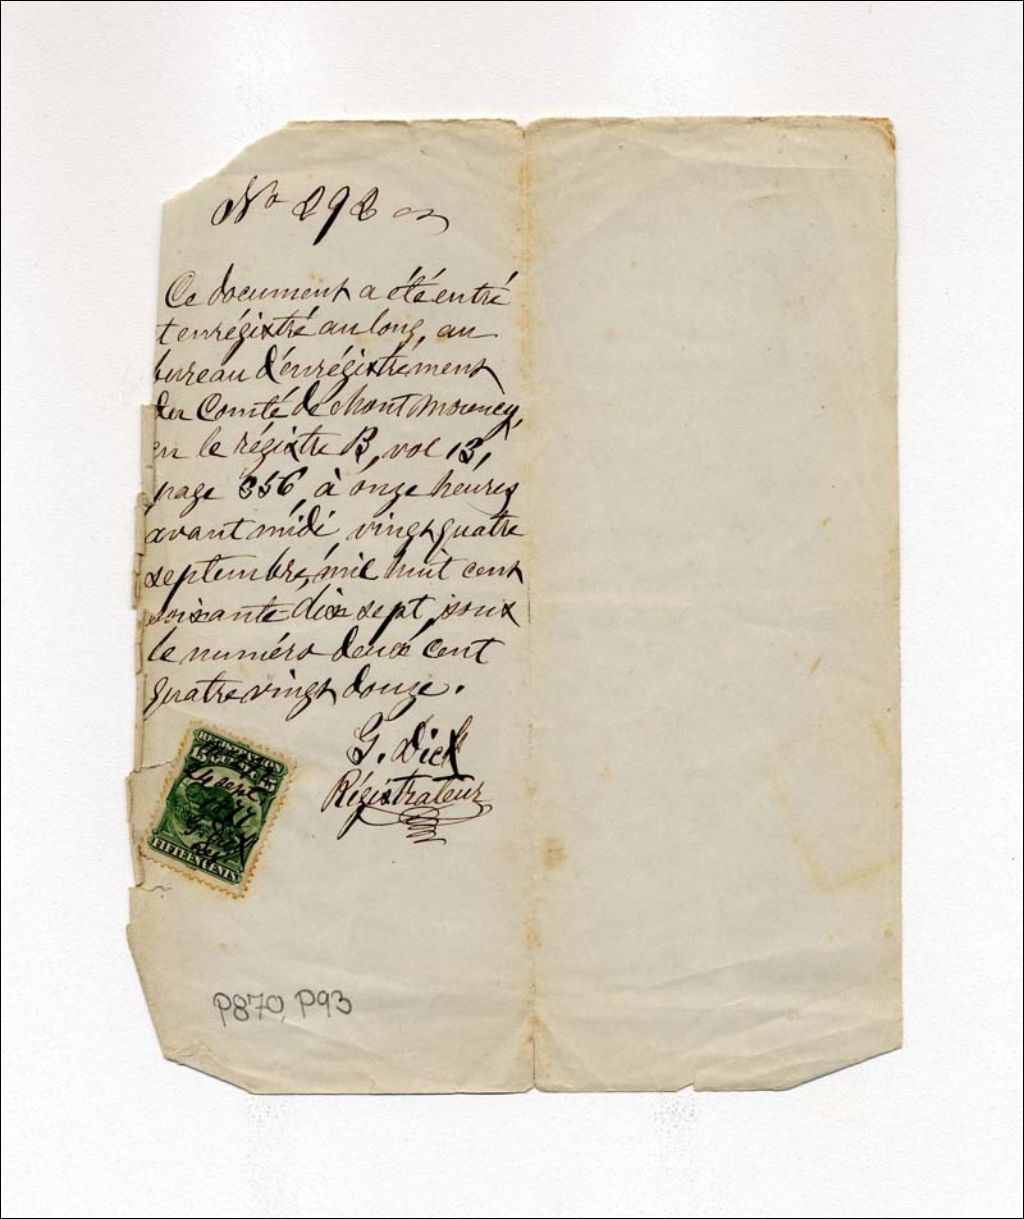 No 292
Ce document a été entré
t enrégistré au long, au
bureau d'enrégistrément
du Comté de Montmorency,
en le régistre B, vol 13,
page 356, à onze heures
avant midi vingt quatre
septembre, mil huit cent
soixante-dix sept, sous
le numéro deux cent
quatre vingt douze.
G. Dick
Régistrateur
REGISTRATION
24 sept
1877
G. Dick
FIFTEEN CENTS
P870, P93